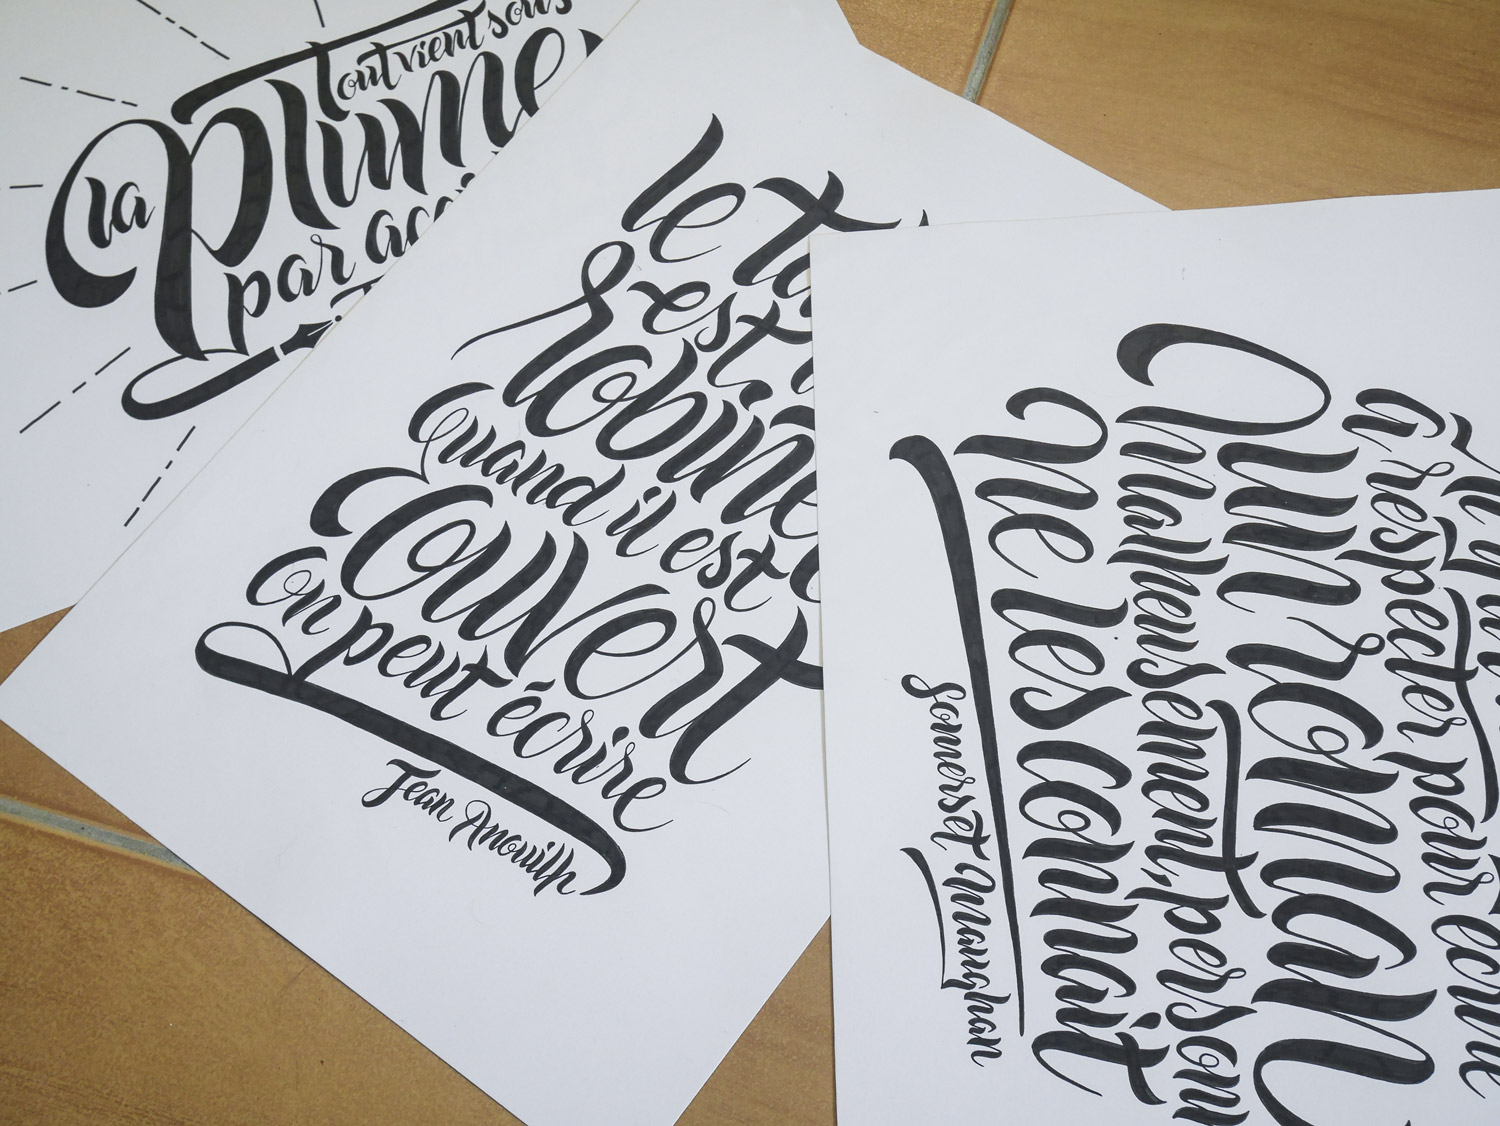 Tout vient sous
la Plume
par
le
est
Robinet
Quand il est
Ouvert
On peut écrire
Jean Anouilh
à respecter pour écrire
Qun roman
Malheureusement, personne
Ne les connait
Somerset Maughan